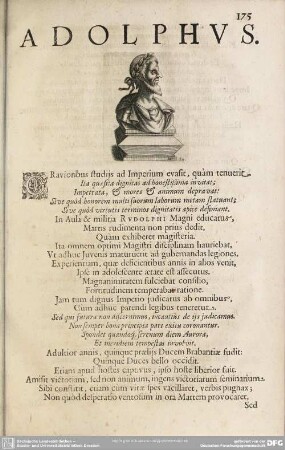 175
ADOLPHVS.
GRavioribus studiis ad Imperium evasit, quàm tenuerit.
Ita quæsita dignitas ad honestissima invitat:
Impetrata, & mores & animum depravat:
Sive quòd honorem multi suorum laborum metam statuunt;
Sive quòd virtutis terminos dignitatis apice definiunt.
In Aula & militia RVDOLPHI Magni educatus,
Martis rudimenta non prius dedit,
Quàm exhiberet magisteria.
Ita omnem optimi Magistri disciplinam hauriebat,
Vt adhuc Iuvenis maturuerit ad gubernandas legiones,
Experientiam, quæ deficientibus annis in alios venit,
Ipse in adolescente ætate est assecutus.
Magnanimitatem fulciebat consilio,
Fortitudinem temperabat ratione.
Jam tum dignus Imperio judicatus ab omnibus,
Cum adhuc parendi legibus teneretur.
Sed qui futura non discernimus, incautius de iis judicamus.
Non semper bona principia pari exitu coronantur.
Spondet quandoq; serenum diem Aurora,
Et meridiem tempestas involvit.
Adultior annis, quinque præliis Ducem Brabantiæ fudit:
Quinque Duces bello occidit.
Etiam apud hostes captivus, ipso hoste liberior fuit.
Amisit victoriam, sed non animum, ingens victoriarum seminarium.
Sibi constitit, etiam cum vitæ spes vacillaret, verbis pugnax;
Non quòd desperatio ventosum in ora Martem provocaret.
Sed